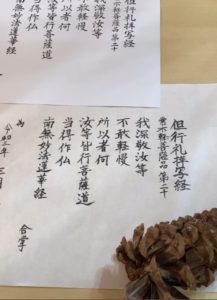 但行礼拝写経
常不軽菩薩品第二十
我深敬汝等
不敢軽慢
所以者何
汝等皆行菩薩道
当得作仏
南無妙法蓮華経
但行礼拝写経
常不軽菩薩品第二十
我深敬汝等
不敢軽慢
所以者何
汝等皆行菩薩道
当得作仏
南無妙法蓮華経
為
合掌
令和三年三月